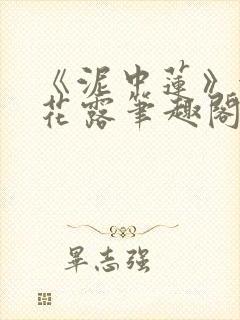 《泥中莲》
花露笔趣阁
畢志强